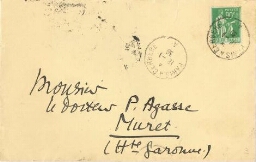 Monsieur
le docteur P. Agasse
Muret
(Hte Garonne)